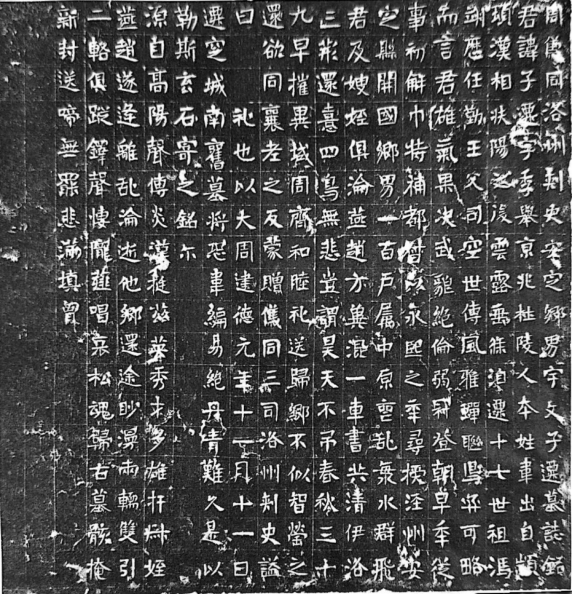 周儀同洛州刺史安定鄉男宇文子遷墓誌銘
君諱子遷字季舉京兆杜陵人本姓韋出自顓
頊漢相扶陽之後雲露垂條遷十七世祖馮
翊應任勤王父司空世傳風雅蟬聯可略
而言君雄氣果決武藝絶倫弱冠登朝早年從
事初解巾特補都督永熙之年尋授涇州安
定縣開國鄉男一百戶屬中原喪亂水群飛
君及嫂姪俱淪燕趙方冀混一車書共清伊洛
三還意四鳥無悲豈謂昊天不弔春秋三十
九早摧異域周齊和睦礼送歸鄉不似智罃之
還欲同襄老之反蒙贈儀同三司洛州刺史謚
曰　礼也以大周建德元年十一月十一日
遷窆城南舊墓將恐韋編易絶丹青難久是以
勒斯玄石寄之銘尓
源自高陽聲傳炎漢挺茲英秀才多雄扞姪
燕趙遂逢離乱淪逝他鄉還途眇漫兩轜雙引
二輅俱蹤鐸聲悽隴薤唱哀松魂歸古墓骸掩
新封送啼無悲滿填胷